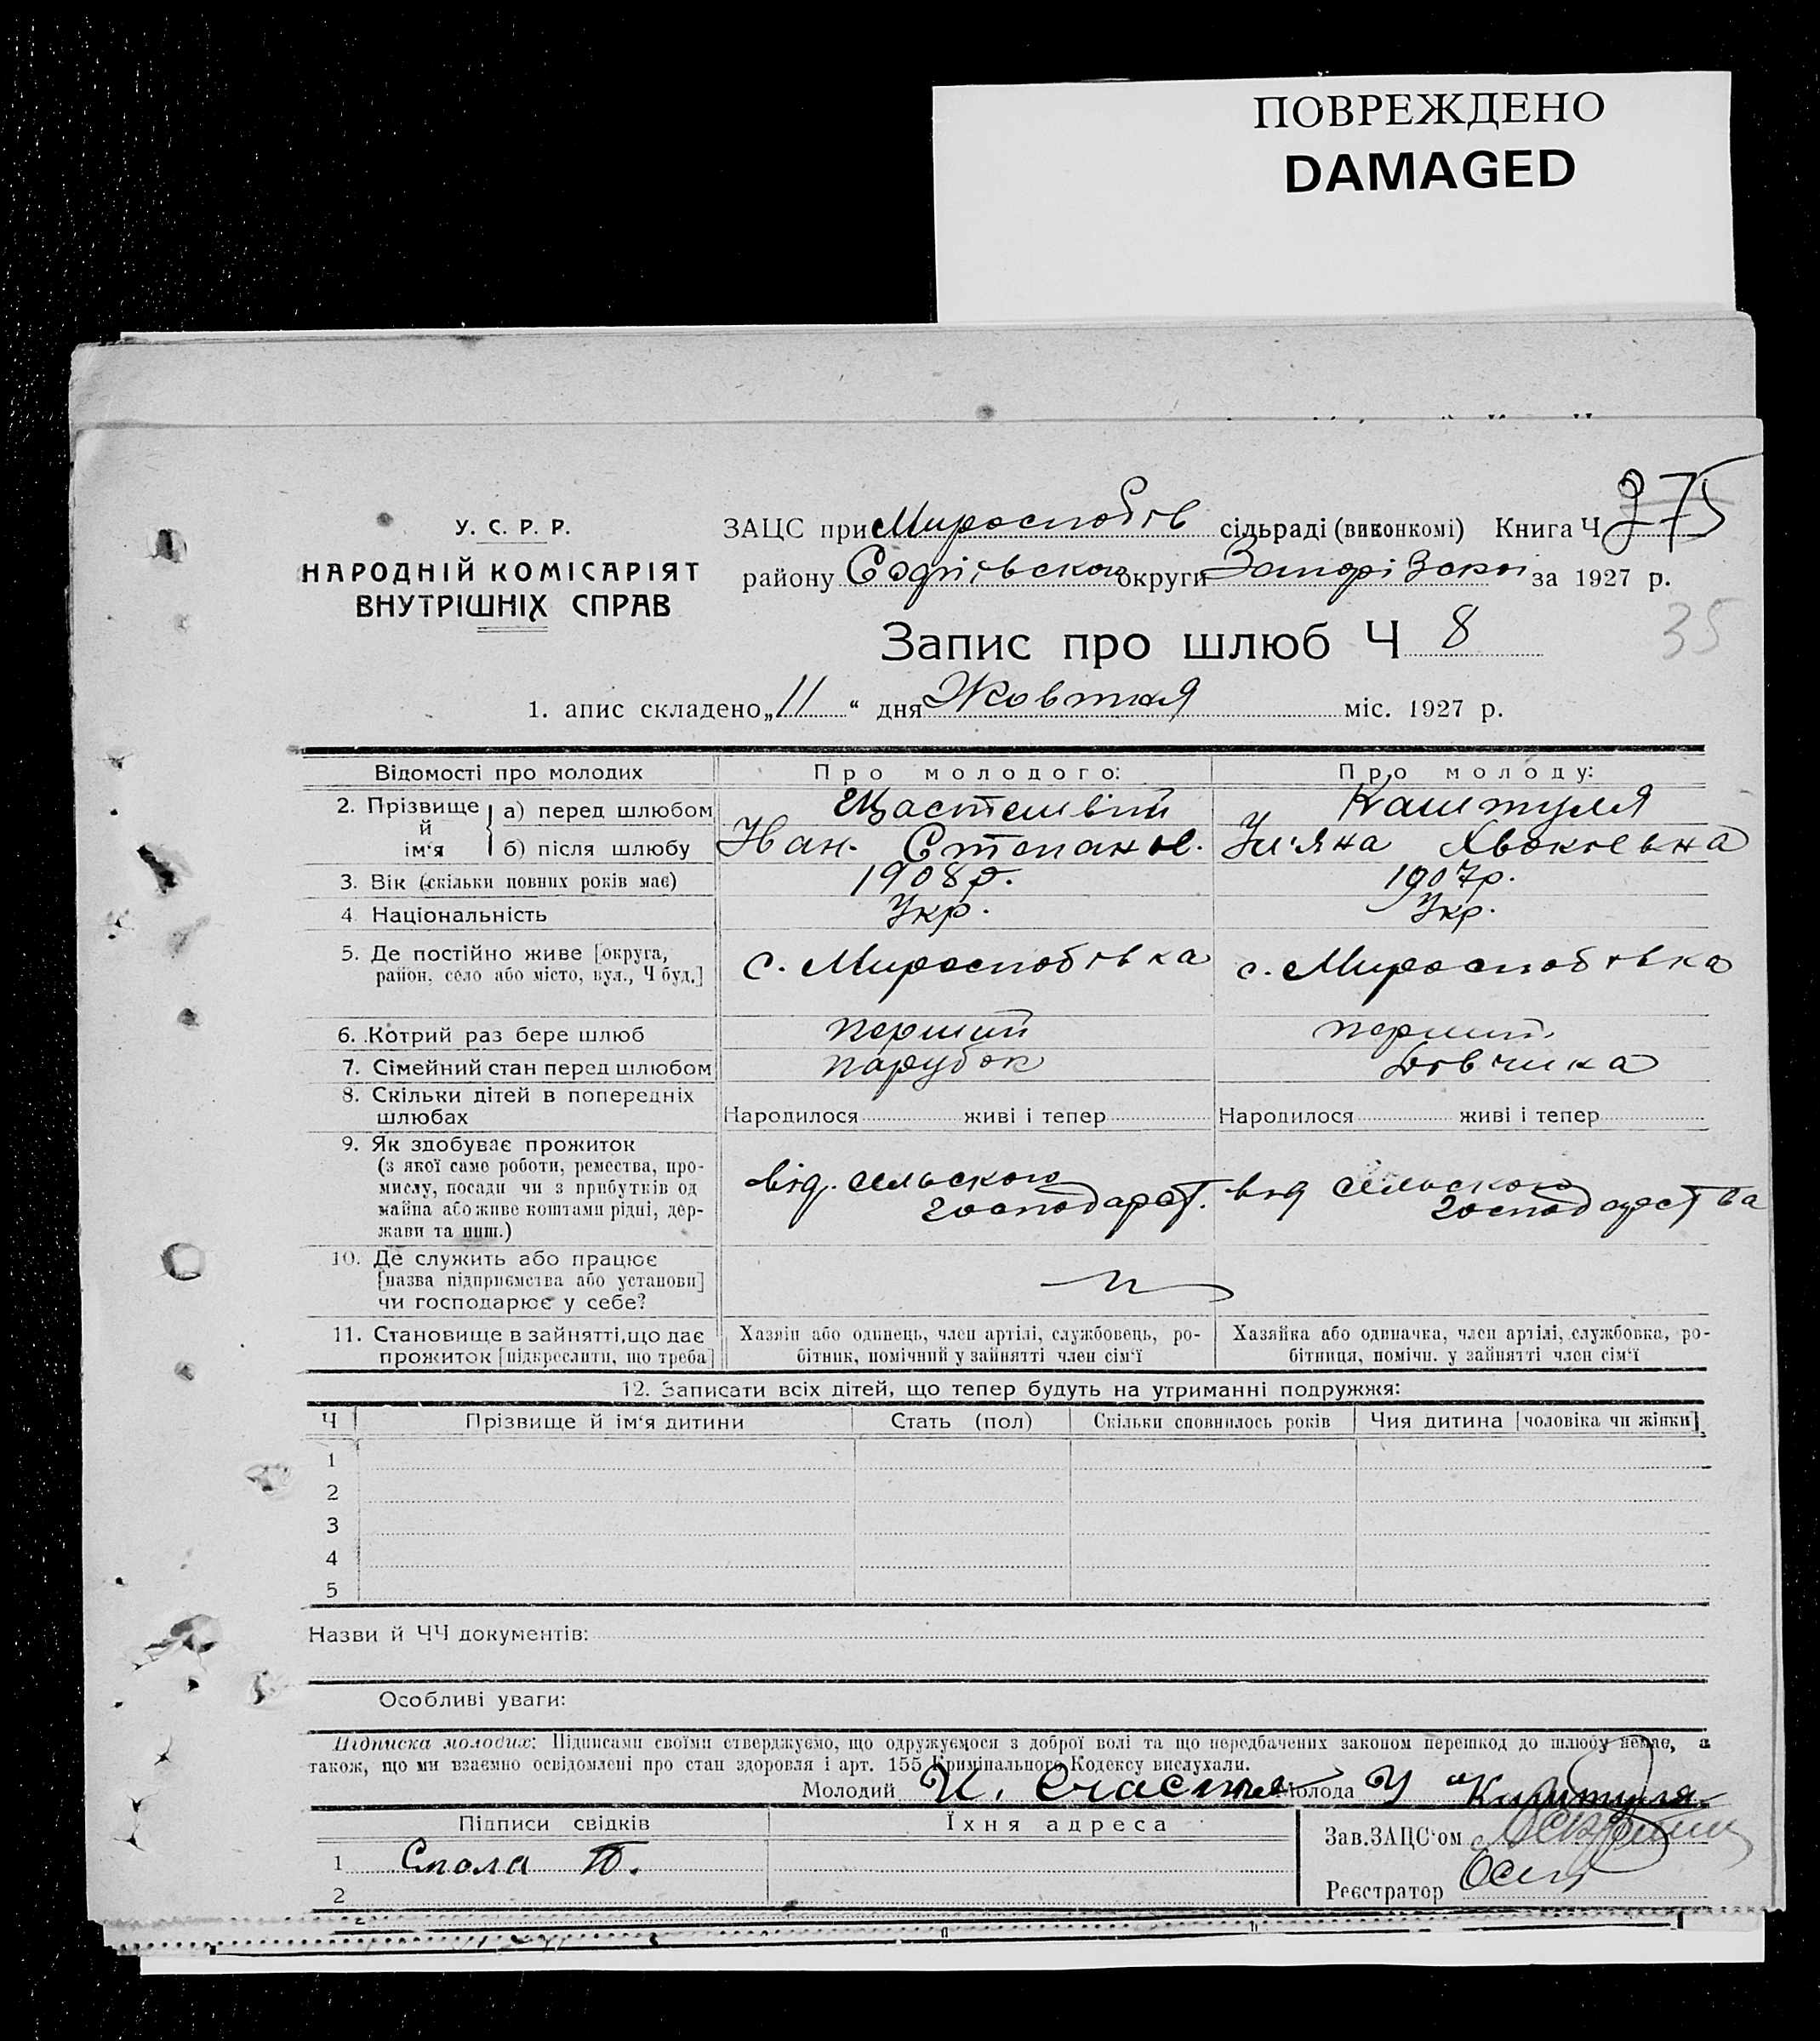 ПОВРЕЖДЕНО
DAMAGED
У. С. Р. Р.
НАРОДНІЙ КОМІСАРІЯТ
ВНУТРІШНІХ СПРАВ
ЗАЦС при сільраді (виконкомі) Книга Ч 275
району округи за 1927 р.
35
Запис про шлюб Ч 8
1. апис складено „11“ дня Жовтня міс. 1927 р.
Відомості про молодих Про молодого: Про молоду:
2. Прізвище й ім‘я а) перед шлюбом Каштуля
б) після шлюбу Степанов. Ул‘яна
3. Вік (скільки повних років має) 1908р. 1907р.
4 Національність Укр. Укр.
5. Де постійно живе [округа,
район, село або місто, вул., Ч буд.] с. Миролюбівка с. Миролюбівка
6. Котрий раз бере шлюб перший перший
7. Сімейний стан перед шлюбом парубок дівчина
8. Скільки дітей в попередніх
шлюбах Народилося живі і тепер Народилося живі і тепер
9. Як здобуває прожиток
(з якої саме роботи, ремества, про-
мислу, посади чи з прибутків од
майна або живе коштами рідні, дер-
жави та инш.)
від. сельского
господарст.
від сельского
господарства
10. Де служить або працює
[назва підприємства або установи]
чи господарює у себе?
11. Становище в зайнятті, що дає
прожиток [підкреслити, що треба]
Хазяїн або одинець, член артілі, службовець, ро-
бітник, помічний у зайнятті член сім‘ї
Хазяйка або одиначка, член артілі, службовка, ро-
бітниця, помічн. у зайнятті член сім‘ї
12. Записати всіх дітей, що тепер будуть на утриманні подружжя:
Ч Прізвище й ім‘я дитини Стать (пол) Скільки сповнилось років Чия дитина [чоловіка чи жінки]
1
2
3
4
5
Назви й ЧЧ документів:
Особливі уваги:
Підписка молодих: Підписами своїми стверджуємо, що одружуємося з доброї волі та що передбачених законом перешкод до шлюбу немає, а
також, що ми взаємно освідомлені про стан здоровля і арт. 155 Кримінального Кодексу вислухали.
Молодий И. Молода У
Підписи свідків Їхня адреса Зав.ЗАЦС‘ом
1
2 Реєстратор